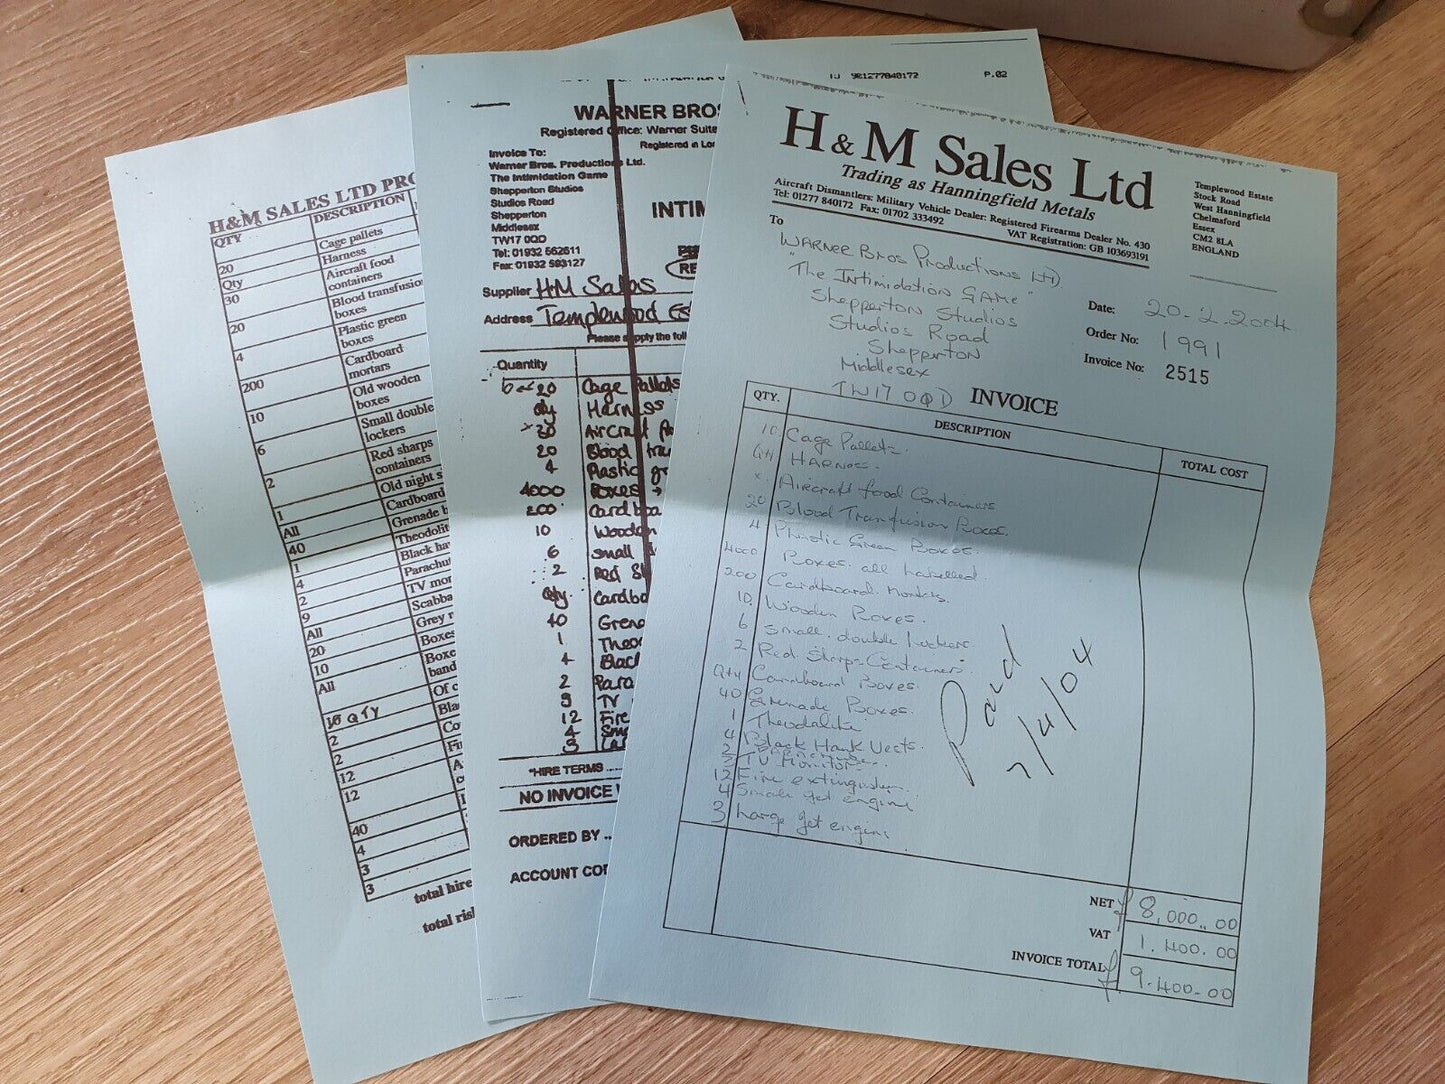 H&M SALES LTD PRO
QTY DESCRIPTION
20 Cage pallets
Qty Harness
30 Aircraft food containers
20 Blood transfusion boxes
4 Plastic green boxes
200 Cardboard mortars
10 Old wooden boxes
6 Small double lockers
2 Red sharps containers
1 Old night s
All Cardboard
40 Grenade b
1 Theodolit
4 Black ha
2 Parachu
9 TV mo
All Scabba
20 Grey
10 Boxes
All Boxe
band
QTY Of c
2 Bla
2 Co
12 Fi
12 A
40
4
3
3
total hire
total ris
921277840172 P.02
WARNER BROS
Registered Office: Warner Suite
Registered in Lon
Invoice To:
Warner Bros. Productions Ltd.
The Intimidation Game
Shepperton Studios
Studios Road
Shepperton
Middlesex
TW17 0QD
Tel: 01932 562611
Fax: 01932 593127
INTIM
RE
Supplier H+M Sales
Address Templewood Es
Please supply the foll
Quantity
20 Cage Pallets
qty Harness
30 Aircraft
20 Blood tra
4 Plastic gr
4000 Boxes
200 Cardboa
10 Wooden
6 Small
2 Red Sh
Qty. Cardbo
40 Grena
1 Theo
4 Black
2 Para
9 TV
12 Fire
4 Sm
3 La
*HIRE TERMS
NO INVOICE
ORDERED BY
ACCOUNT COD
H & M Sales Ltd
Trading as Hanningfield Metals
Aircraft Dismantlers: Military Vehicle Dealer: Registered Firearms Dealer No. 430
Tel: 01277 840172 Fax: 01702 333492
VAT Registration: GB 103693191
Templewood Estate
Stock Road
West Hanningfield
Chelmsford
Essex
CM2 8LA
ENGLAND
To
Warner Bros Productions Ltd
"The Intimidation Game"
Shepperton Studios
Studios Road
Shepperton
Middlesex
TW17 0QD
Date: 20.2.2004
Order No: 1991
Invoice No: 2515
INVOICE
QTY. DESCRIPTION TOTAL COST
10 Cage Pallets.
Qty Harnes.
x. Aircraft food Containers
20 Blood Tranfusion Boxes.
4 Plastic Green Boxes.
4000 Boxes. all labelled
200 Cardboard. mortars.
10. Wooden Boxes.
6 small. double lockers
2 Red Sharps Containers
Qty Cardboard Boxes.
40 Grenade Boxes.
1 Theodalite
4 Black Hawk Vests.
2
3 TV Monitor
12 Fire extinguishers.
4 Small jet engine
3 Large jet engine
Paid
7/4/04
NET £ 8,000.00
VAT 1.400.00
INVOICE TOTAL £ 9.400-00